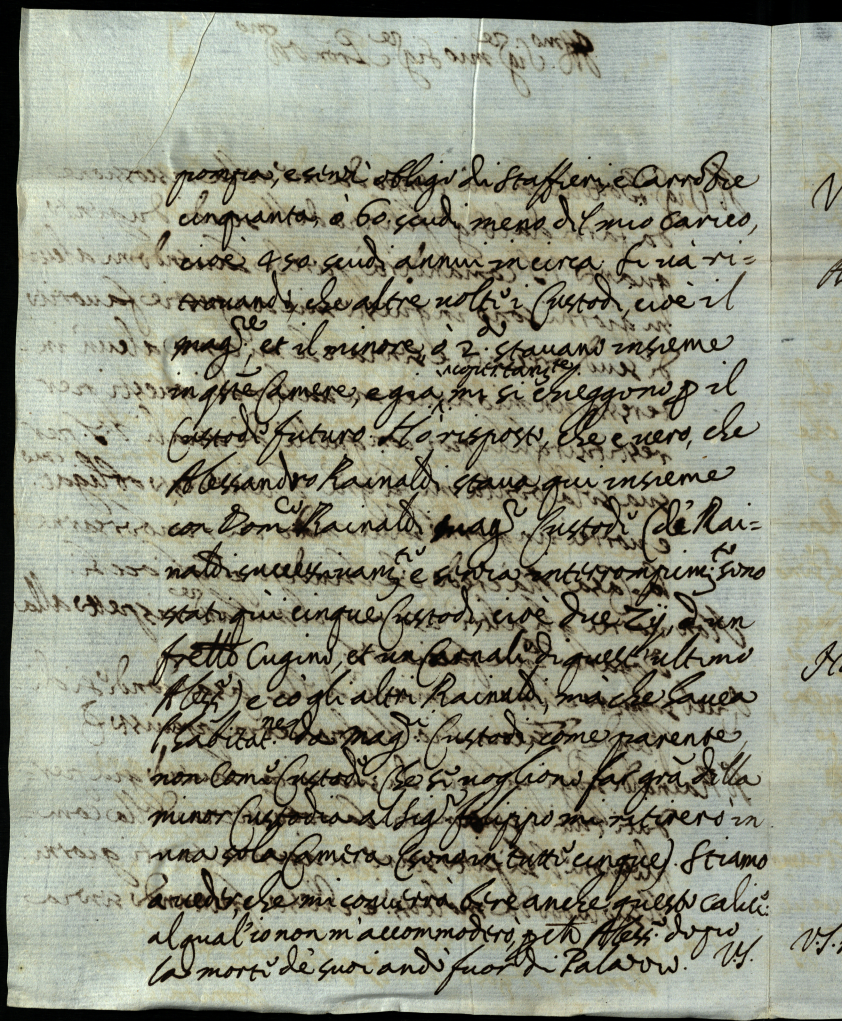 pompa, e senz' obligo di Staffieri, e Carrozze
cinquanta, ò 60 scudi meno dil mio carico,
cioè 450 scudi annui in circa. Si và ri=
trovando, che altre volte i Custodi, cioè il
mag.re, et il minore, ò 2.do stavano insieme
in q.ste Camere, e già mi si chieggono p il
Custode futuro. Hò risposto, che è vero, che
Alessandro Rainaldi stava qui insieme
con Dom.co Rainaldi mag.r Custode (de' Rai=
naldi successivam.te e senza interrompim.to sono
stati qui cinque Custodi, cioè due Zij, d un
frello Cugino, et un di questi ultimo
Aless.) e cò gli altri Rainaldi, mà che havea
l'habitat.ne da mag.r Custode, come parente,
non come Custode. Che se vogliono far grã della
minor Custodia al Sig.r Filippo mi ritirerò in
una sola Camera (sono in tutte cinque). Stiamo
à vedere, che mi converrà bere anche questo calice:
al qual' io non m' accommoderò, Aless. dopo
la morte de' suoi andò fuor di Palazzo. V.S.